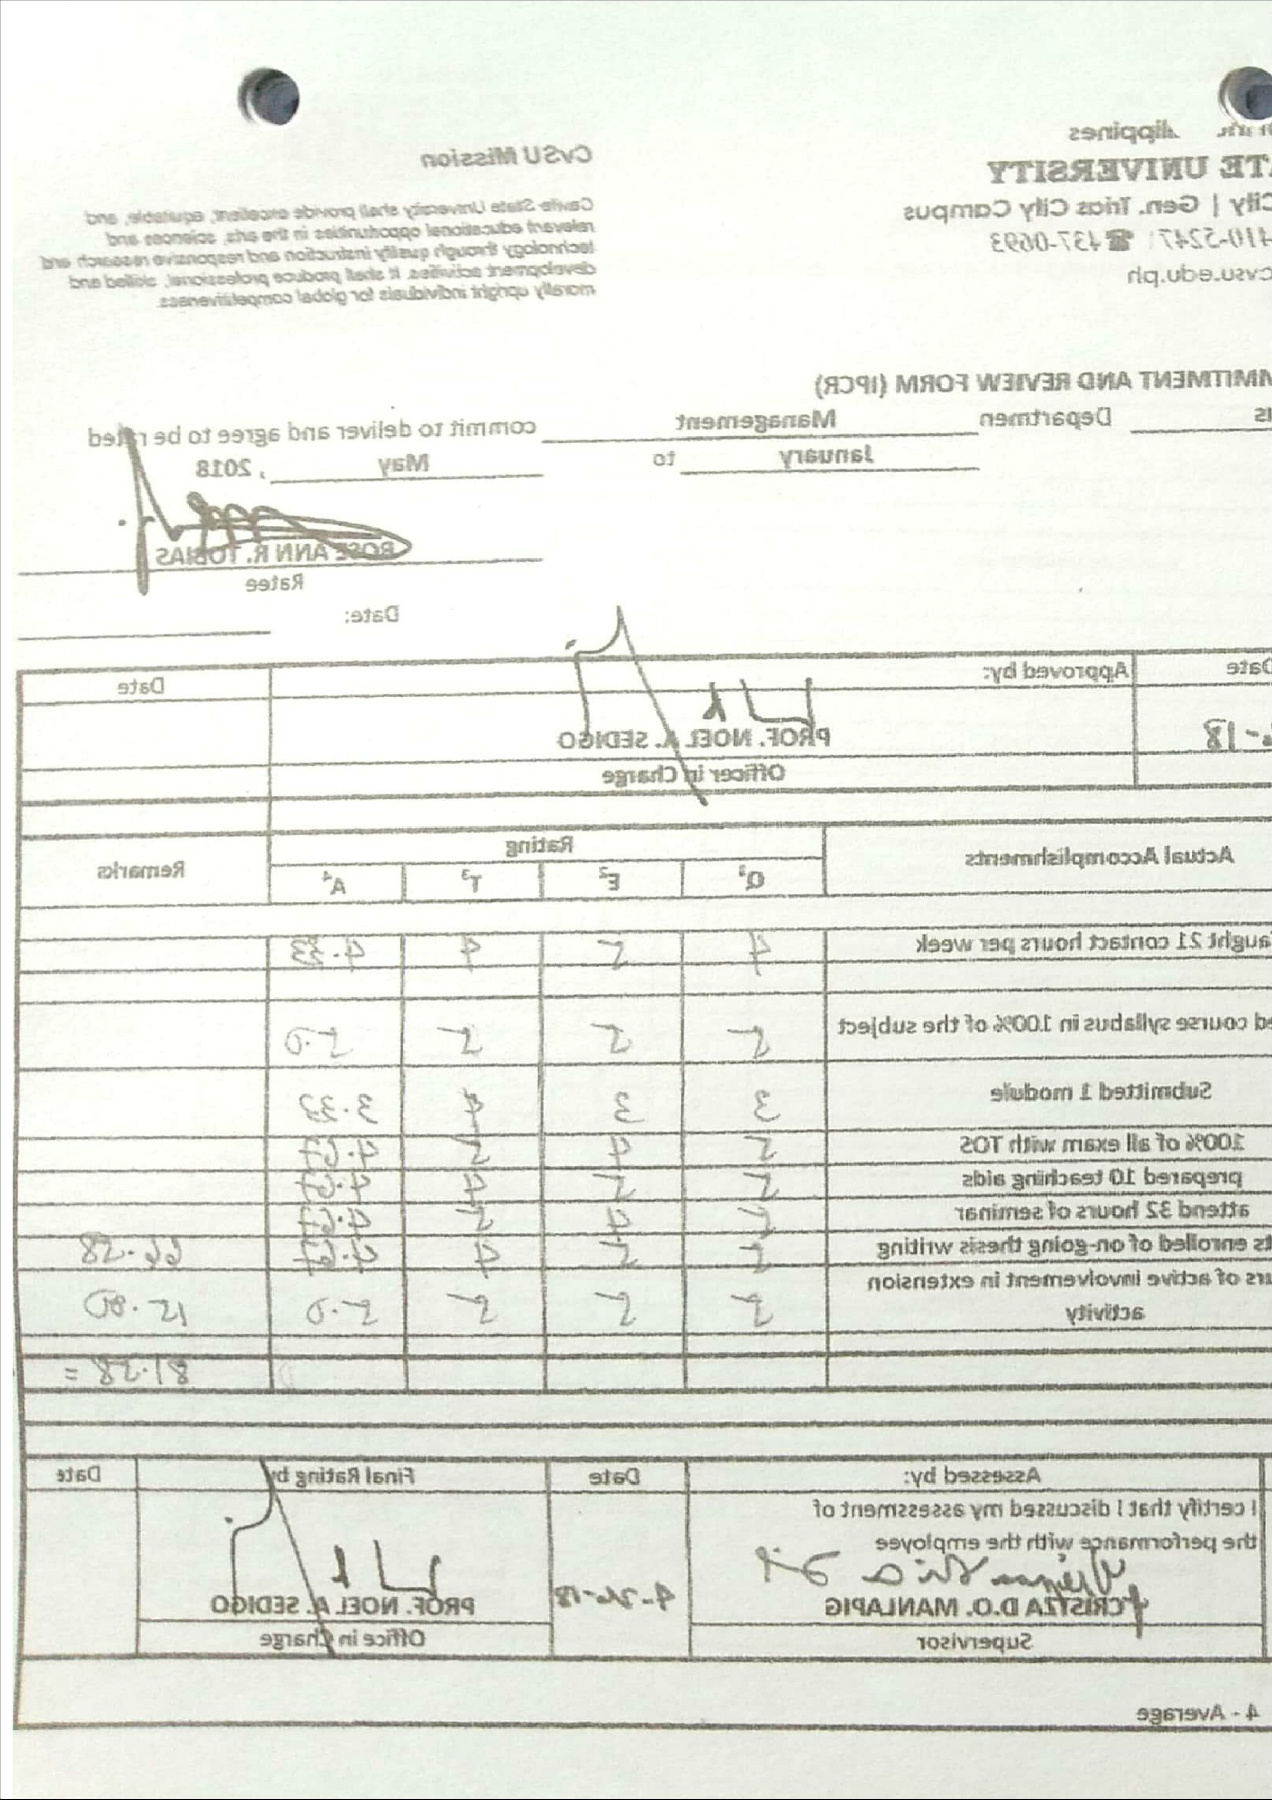 ilippines
TE UNIVERSITY
City | Gen. Trias City Campus
410-5247 ☎ 437-0693
cvsu.edu.ph
CvSU Mission
Cavite State University shall provide excellent, equitable, and
relevant educational opportunities in the arts, sciences and
technology through quality instruction and responsive research and
development activities. It shall produce professional, skilled and
morally upright individuals for global competitiveness.
MMITMENT AND REVIEW FORM (IPCR)
is Departmen Management commit to deliver and agree to be rated
January to May , 2018
ROSE ANN R. TOBIAS
Ratee
Date:
Date Approved by: Date
-18
PROF. NOEL A. SEDIGO
Officer in Charge
Actual Accomplishments Rating Remarks
Q¹ E² T³ A⁴
aught 21 contact hours per week 4 5 4 4.33
ed course syllabus in 100% of the subject 5 5 5 5.0
Submitted 1 module 3 3 4 3.33
100% of all exam with TOS 5 4 5 4.67
prepared 10 teaching aids 5 5 4 4.67
attend 32 hours of seminar 5 4 5 4.67
ts enrolled of on-going thesis writing 5 5 4 4.67 66.58
urs of active involvement in extension
activity 5 5 5 5.0 15.00
81.58 =
Assessed by: Date Final Rating by Date
I certify that I discussed my assessment of
the performance with the employee
CRISTZA D.O. MANLAPIG 4-26-18 PROF. NOEL A. SEDIGO
Supervisor Office in Charge
4 - Average